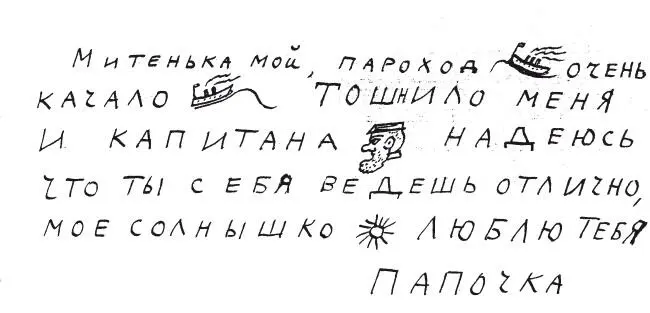 Митенька мой, пароход очень
качало тошнило меня
и капитана надеюсь
что ты себя ведешь отлично,
мое солнышко люблю тебя
Папочка